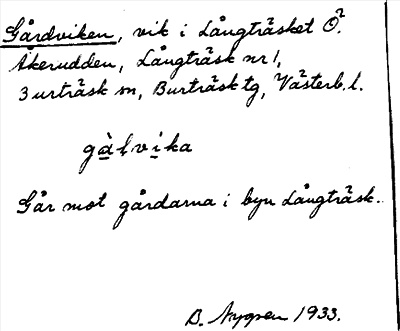 Gårdviken, vik i Långträsket Ö.
Åkerudden, Långträsk nr 1,
Burträsk sn, Burträsk tg, Västerb. l.
gàḷvika
Går mot gårdarna i byn Långträsk.
B. Nygren 1933.